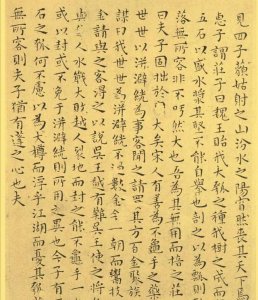 見四子藐姑射之山汾水之陽窅然喪其天下焉
惠子謂莊子曰魏王貽我大瓠之種我樹之成而
五石以盛水漿其堅不能自舉也剖之以為瓢則
落無所容非不呺然大也吾為其無用而掊之莊
曰夫子固拙於用大矣宋人有善為不龜手之藥
世世以洴澼絖為事客聞之請買其方百金聚族
謀曰我世世為洴澼絖不過數金今一朝而鬻技
金請與之客得之以說吳王越有難吳王使之將
與越人水戰大敗越人裂地而封之能不龜手一
或以封或不免於洴澼絖則所用之異也今子有
石之瓠何不慮以為大樽而浮乎江湖而憂其瓠
無所容則夫子猶有蓬之心也夫